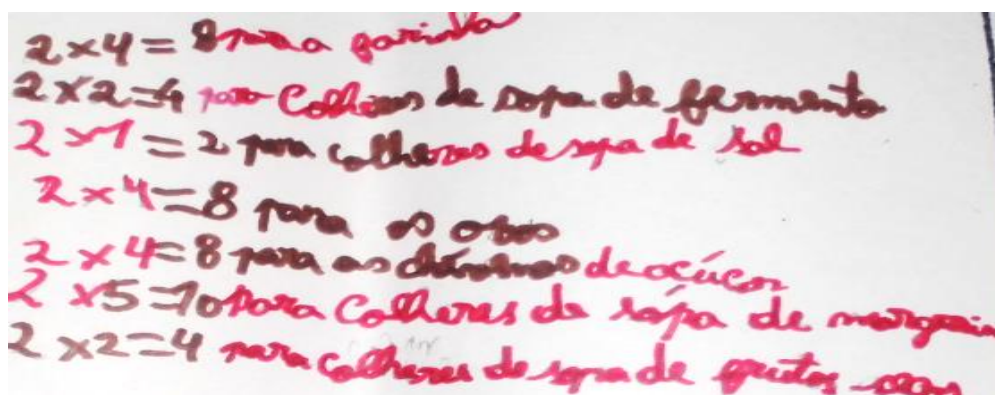 2 x 4 = 8 para a farinha
2 x 2 = 4 para Colheres de sopa de fermento
2 x 1 = 2 para colheres de sopa de sal
2 x 4 = 8 para os ovos
2 x 4 = 8 para as chávenas de açúcar
2 x 5 = 10 para Colheres de sopa de
2 x 2 = 4 para colheres de sopa de frutos secos